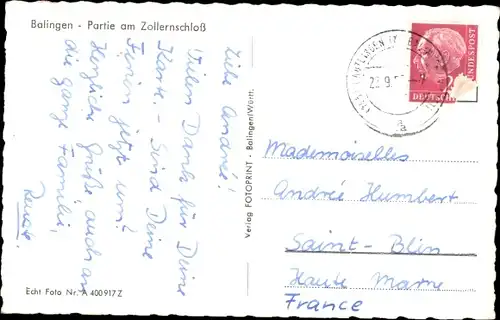 Balingen - Partie am Zollernschloß
Liebe Andrée!
Vielen Dank für Deine
Karte. - Sind Deine
Ferien jetzt um?
Herzliche Grüße auch an
die ganze Familie,
Renate.
Echt Foto Nr. A 400917 Z
Verlag FOTOPRINT - Balingen/Württ.
BUNDESPOST
DEUTSCHE
Mademoiselles
Andrée Humbert
Saint-Blin
Haute Marne
France